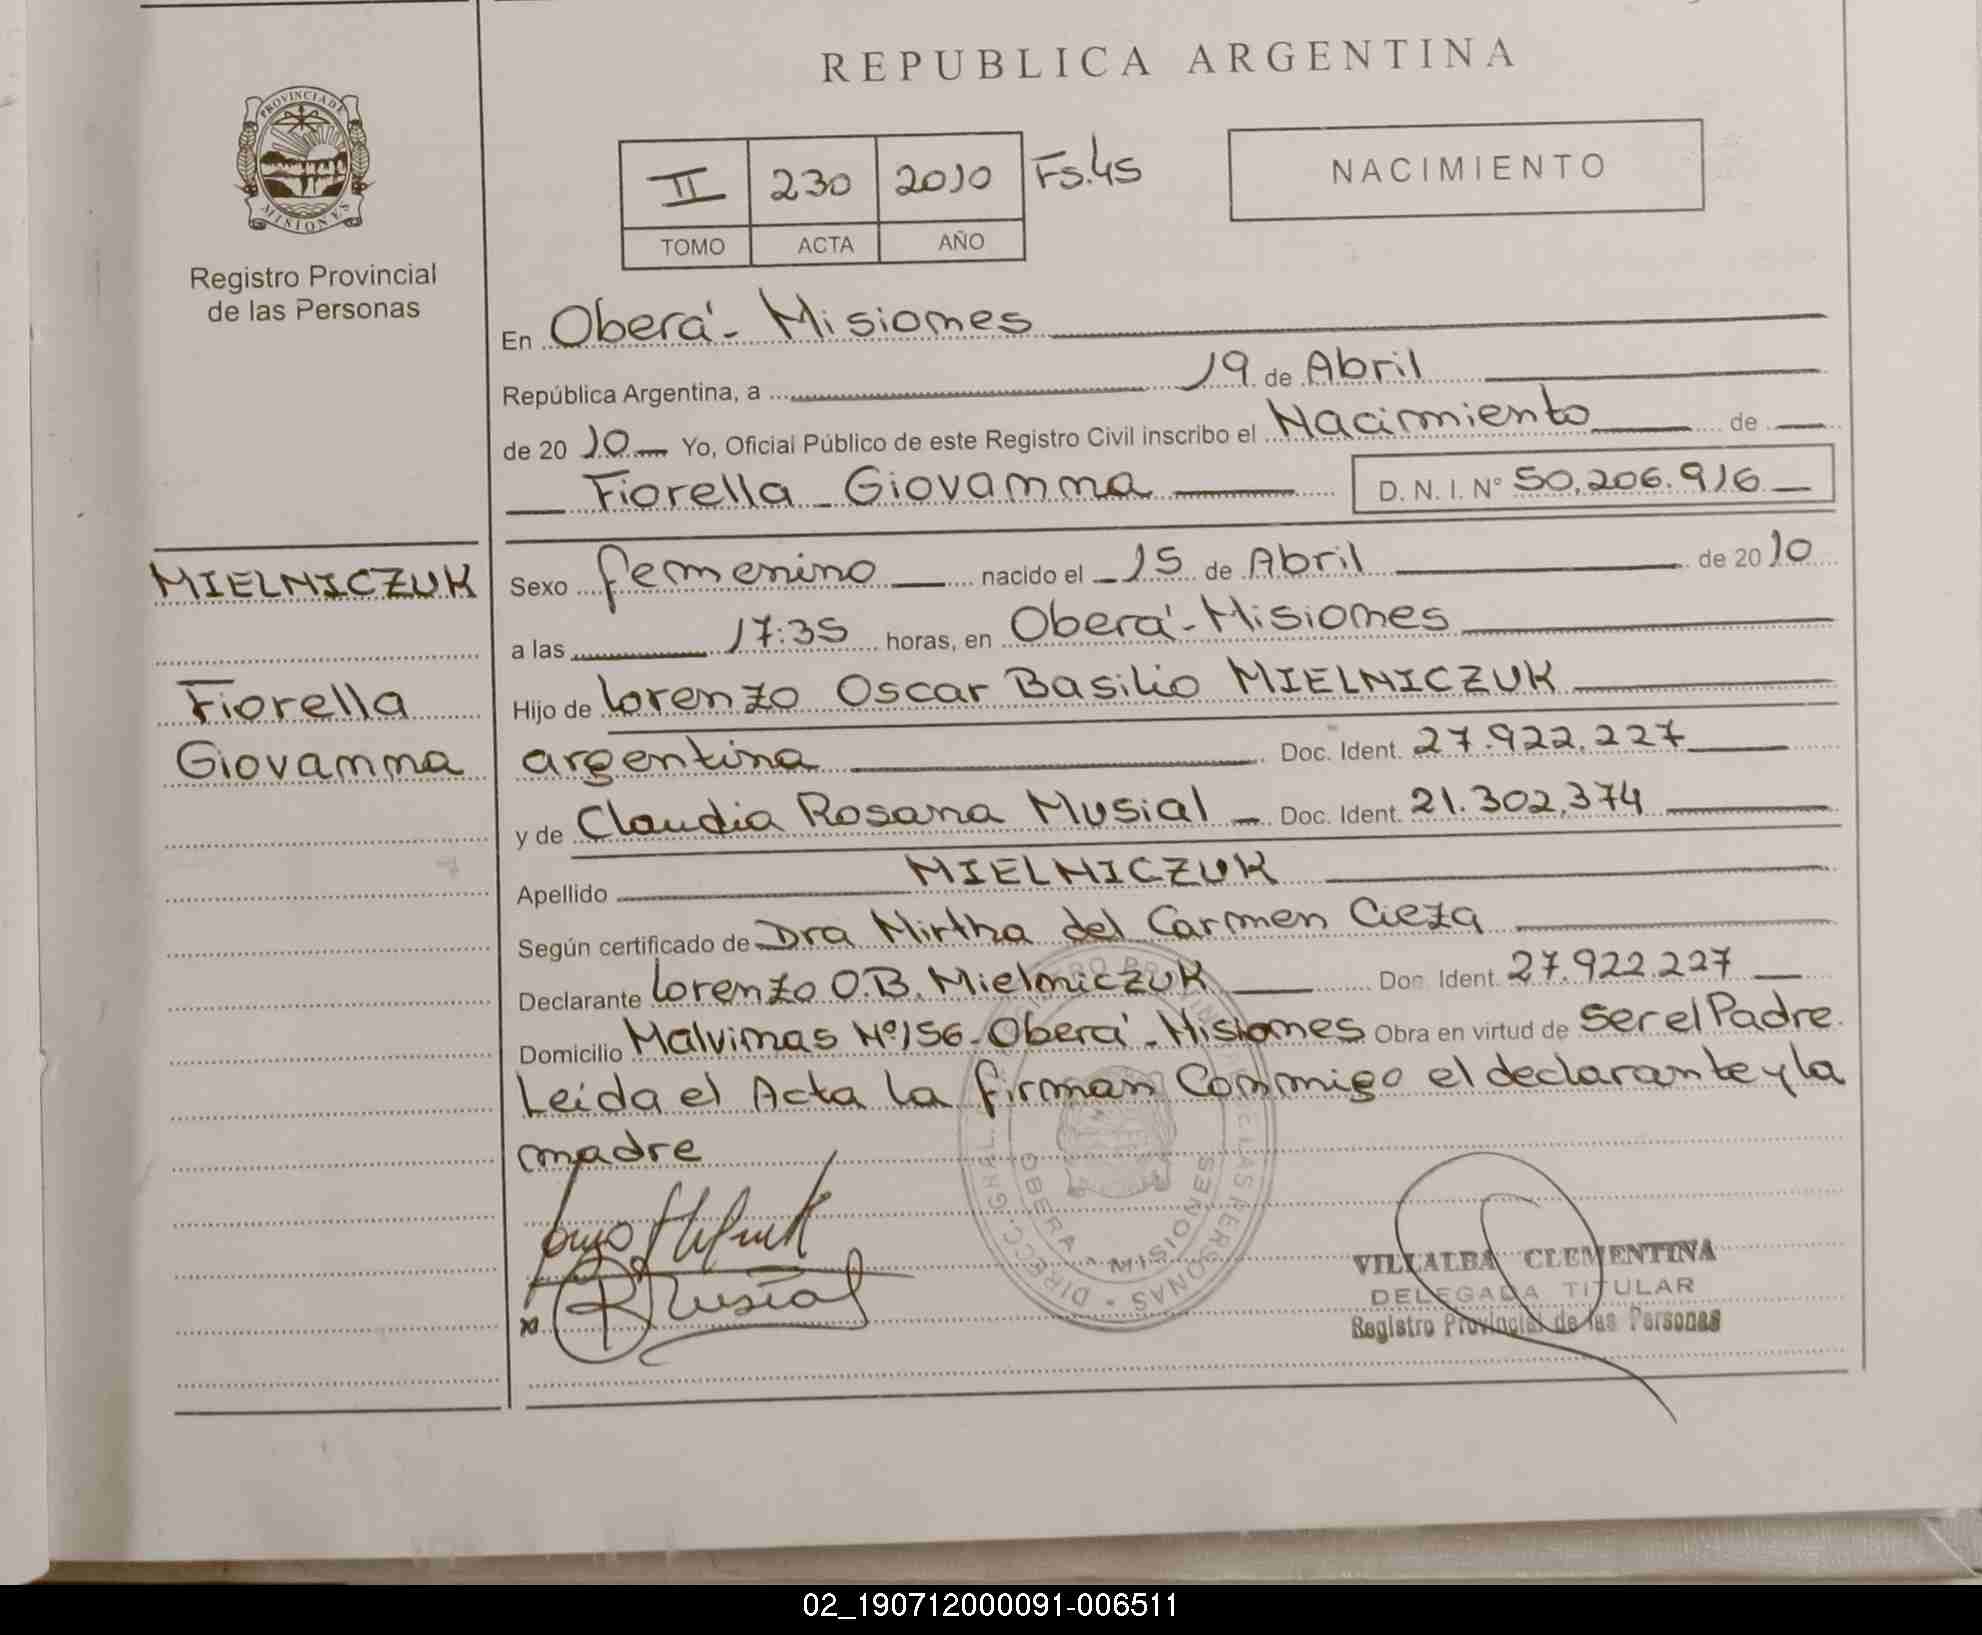 REPUBLICA ARGENTINA
PROVINCIA DE
MISIONES
Registro Provincial
de las Personas
II 230 2010 Fs.45
TOMO ACTA AÑO
NACIMIENTO
En Oberá - Misiones
República Argentina, a 19 de Abril
de 2010 Yo, Oficial Público de este Registro Civil inscribo el Nacimiento de
Fiorella Giovanna D. N. I. N° 50.206.916
MIELNICZUK
Fiorella
Giovanna
Sexo femenino nacido el 15 de Abril de 2010
a las 17:35 horas, en Oberá - Misiones
Hijo de Lorenzo Oscar Basilio MIELNICZUK
argentina Doc. Ident. 27.922.227
y de Claudia Rosana Musial Doc. Ident. 21.302.374
Apellido MIELNICZUK
Según certificado de Dra Mirtha del Carmen Cieza
Declarante Lorenzo O.B. Mielniczuk Doc. Ident. 27.922.227
Domicilio Malvinas Nº 156 - Oberá - Misiones Obra en virtud de ser el Padre
Leída el Acta la firman Conmigo el declarante y la
madre
Musial
OBERA - MISIONES
VILLALBA CLEMENTINA
DELEGADA TITULAR
Registro Provincial de las Personas
02_190712000091-006511